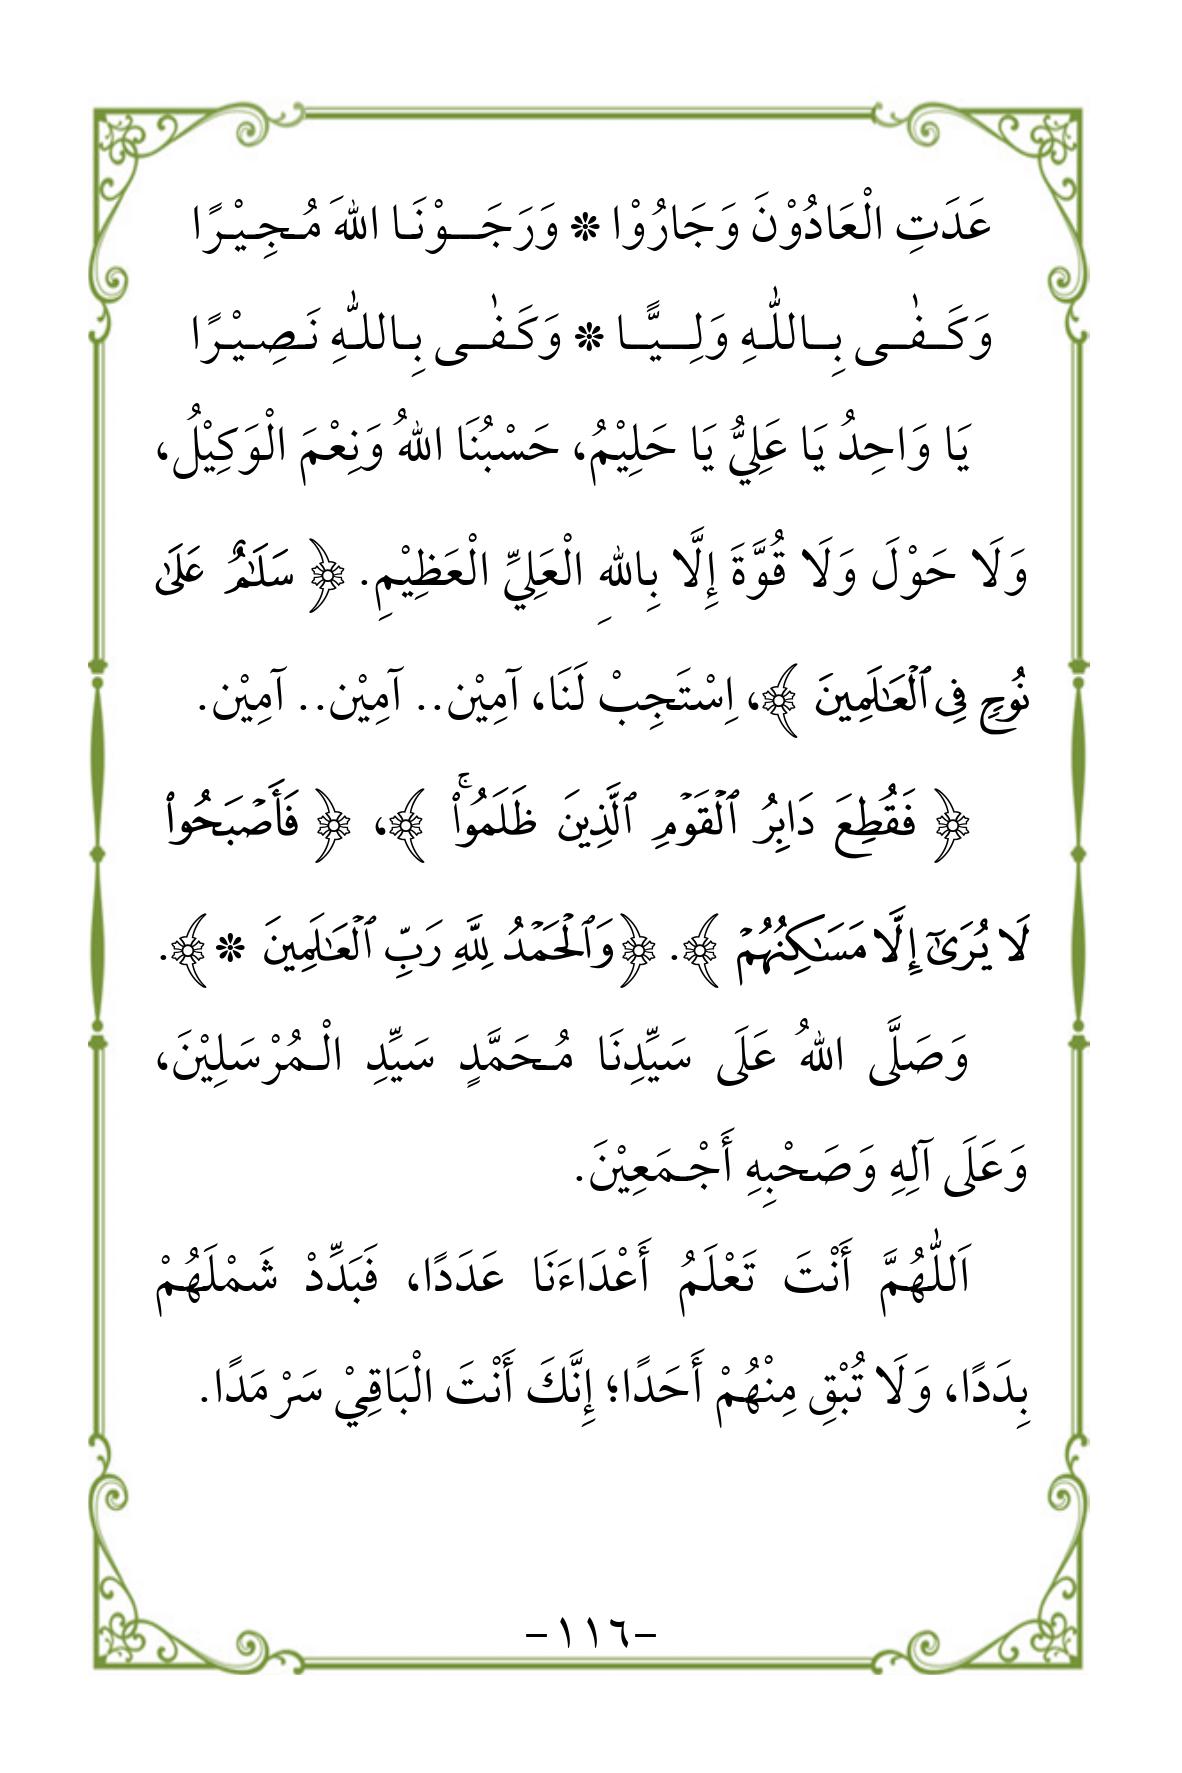 عَدَتِ الْعَادُوْنَ وَجَارُوْا ❋ وَرَجَـــوْنَـا اللهَ مُـجِـيْـرًا
وَكَــفٰــى بِــاللّٰـهِ وَلِـــيًّــا ❋ وَكَـفٰــى بِـاللّٰـهِ نَـصِـيْـرًا
يَا وَاحِدُ يَا عَلِيُّ يَا حَلِيْمُ، حَسْبُنَا اللهُ وَنِعْمَ الْوَكِيْلُ،
وَلَا حَوْلَ وَلَا قُوَّةَ إِلَّا بِاللهِ الْعَلِيِّ الْعَظِيْمِ. ﴿ سَلَٰمٌ عَلَىٰ
نُوحٍ فِى ٱلْعَٰلَمِينَ ﴾، اِسْتَجِبْ لَنَا، آمِيْن.. آمِيْن.. آمِيْن.
﴿ فَقُطِعَ دَابِرُ ٱلْقَوْمِ ٱلَّذِينَ ظَلَمُوا۟ۚ ﴾، ﴿ فَأَصْبَحُوا۟
لَا يُرَىٰٓ إِلَّا مَسَٰكِنُهُمْ ﴾. ﴿وَٱلْحَمْدُ لِلَّهِ رَبِّ ٱلْعَٰلَمِينَ ❋﴾.
وَصَلَّى اللهُ عَلَى سَيِّدِنَا مُـحَمَّدٍ سَيِّدِ الْـمُرْسَلِيْنَ،
وَعَلَى آلِهِ وَصَحْبِهِ أَجْـمَعِيْنَ.
اَللّٰهُمَّ أَنْتَ تَعْلَمُ أَعْدَاءَنَا عَدَدًا، فَبَدِّدْ شَمْلَهُمْ
بِدَدًا، وَلَا تُبْقِ مِنْهُمْ أَحَدًا؛ إِنَّكَ أَنْتَ الْبَاقِيْ سَرْمَدًا.
-١١٦-